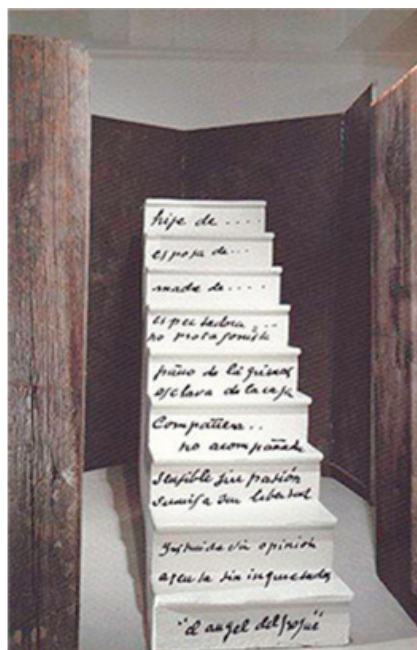 hija de ....
esposa de...
madre de ....
espectadora ...
no protagonista
paño de lágrimas
esclava de la casa
Compañera..
no acompañada
Sensible sin pasión
Sumisa sin libertad
Instruida sin opinión
sin inquietudes
"el angel del hogar"